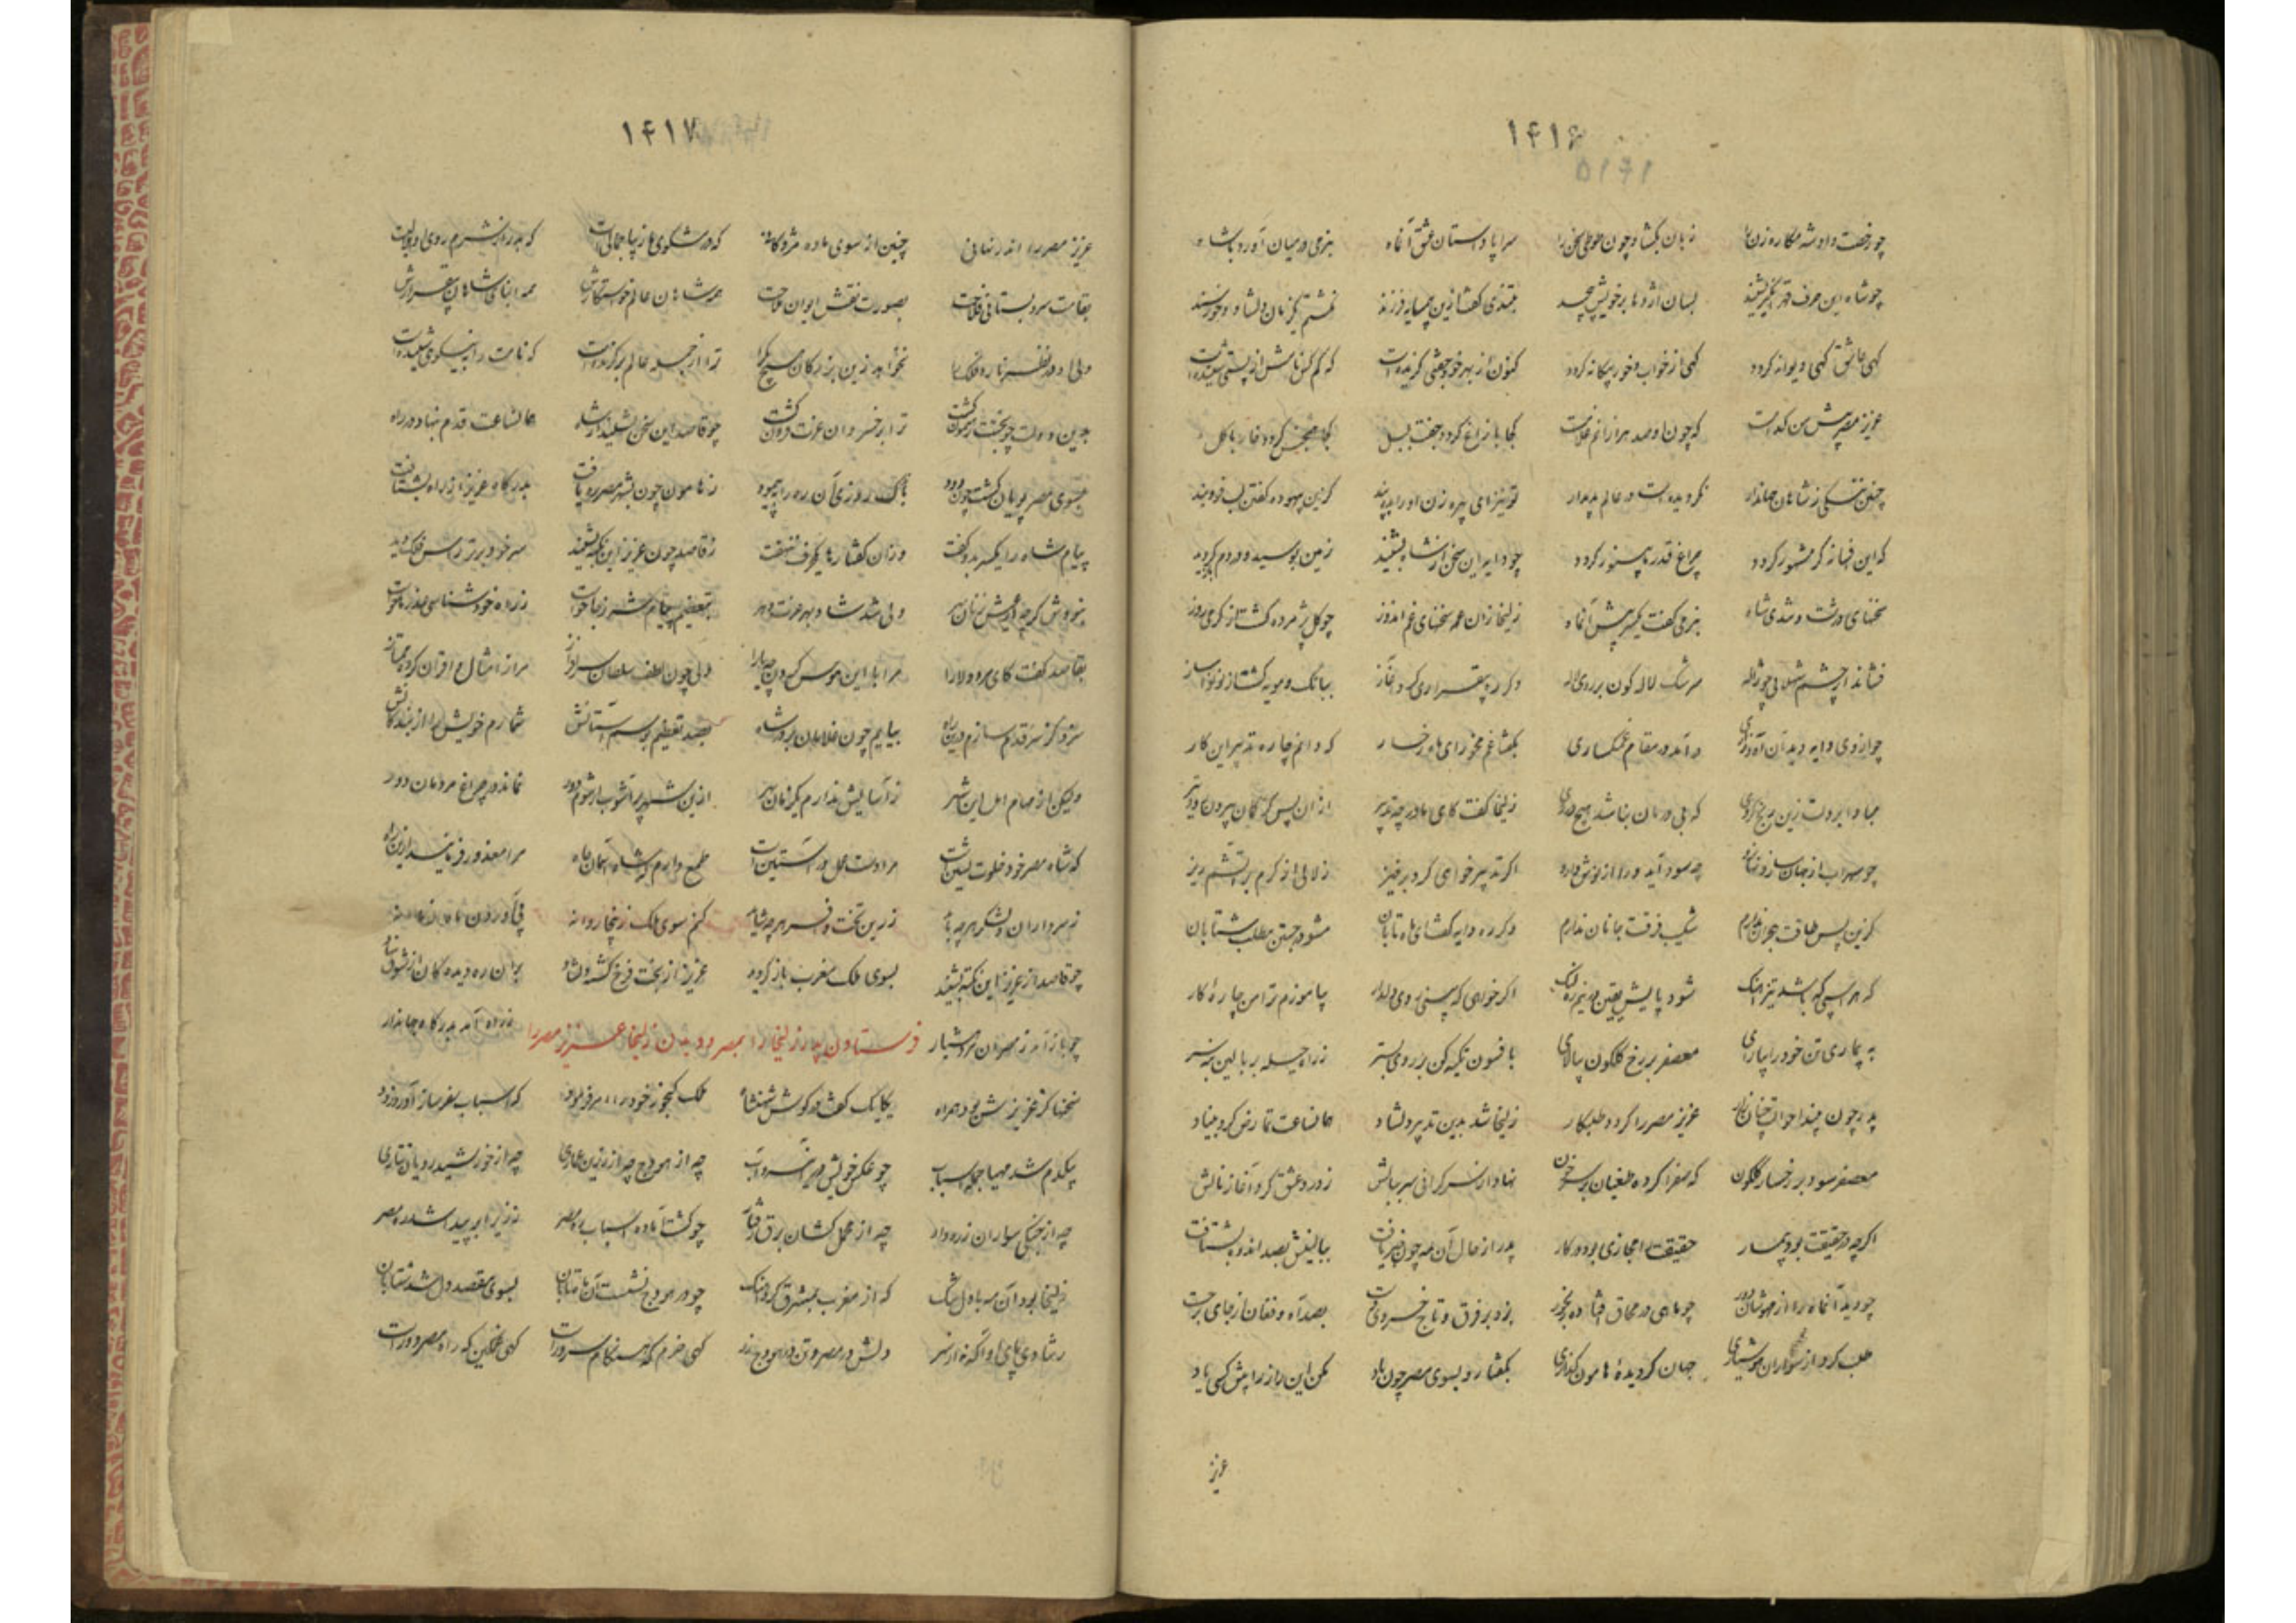 ۱۴۱۶
۱۴۱۵
چو رخصت داد شه مکاره زن را زبان بگشاد چون طوطی سخن را سراپا داستان عشق آنماه بنرمی در میان آورد با شاه
چو شاه این حرف بسان اژدها بر خویش پیچید
کهی عاشق کهی دیوانه کردد کهی از خواب و خور بیکانه کردد کنون از بهر خود جفتی کزیده است که کم کس نامش از پستی شنیده است
عزیز مصر پیش من کدا است که چون او صد هزارانم غلامست کجا با زاغ کردد جفت بلبل کجا کردد خار با کل
چنین ننکی ز شاهان جهاندار نکردیده است در عالم پدیدار تو نیز ای پیره زن او را بده پند کزین بیهوده کفتن لب فروبند
که این فسانه کر مشهور کردد چراغ قدر ما بی نور کردد چو دایه این سخن از شاه بشنید زمین بوسید و در دم
سخنهای درشت و تندی شاه بنرمی کفت یکسر پیش آنماه زلیخا زان همه سخنهای غم اندوز چو کل پژمرده کشت از کرمی روز
فشاند از چشم شهلا پر ژاله سرشک لاله کون بر روی لاله دکر ره بیقراری کرد آغاز ببانک و مویه کشت از نو نواساز
چو از وی دایه دید آن آه و زاری در آمد در مقام غمکساری بکفتا غم مخور ای ماه رخسار که دانم چاره تدبیر این کار
مبادا بر دلت زین رنج که بی درمان نباشد هیچ دردی زلیخا کفت کای مادر چه تدبیر از آن پس کز کمان بیرون رود تیر
چو سهراب از جهان سازد چه سود آید ورا از نوش دارو اکر تدبیر خواهی کرد برخیز زلالی از کرم بر آتشم ریز
کزین پس طاقت هجران ندارم شکیب فرقت جانان ندارم دکر ره دایه کفت ای ماه تابان مشو در جستن مطلب شتابان
که هر اسبی که باشد تیز آهنک شود پایش یقین در نیم ره لنک اکر خواهی که بینی روی دلدار بیاموزم ترا من چاره کار
به بیماری تن خود را معصفر بر رخ کلکون بیالای با فسون تکیه کن بر روی بستر ز راه حیله بر بالین بنه سر
پدر چون بیند احوالت چنان زار عزیز مصر را کردد طلبکار زلیخا شد بدین تدبیر دلشاد همانساعت تمارض کرد بنیاد
معصفر سود بر رخسار کلکون که صفرا کرده طغیان بر سر خون نهاد از سرکرانی سر ببالش ز درد عشق کرد آغاز نالش
اکرچه در حقیقت بود بیمار حقیقت را مجازی بود در کار پدر از حال آن مه چون خبر یافت ببالینش بصد اندوه بشتافت
چو دید آنماه را از هوشان دور چو ماهی در محاق افتاده بی نور بزد بر فرق و تاج خسروی بصد آه و فغان از جای برخاست
طلب کرد از سواران هوشیاری جهان کردیده هامون کذاری بکفتا رو بسوی مصر چون باد مکن این راز را پیش کسی یاد
عزیز
۱۴۱۷
عزیز مصر را اندر نهانی چنین از سوی ما ده مژدکانی که در مشکوی ما زیبا جمالیست که بدر از شرم روی او هلالیست
بقامت سرو بستانی غلامت بصورت نقش ایوان همه شاهان عالم خواستکارش همه ابنای شاهان بیقرارش
ولی در نظر نخواهد زین بزرکان هیچ ترا از جمله عالم بر کزیده است که نامت را به نیکوی شنیده است
بدین دولت چو بختت رهنمون کشت ترا بر خسروان عزت فزون کشت چو قاصد این سخن بشنید از شاه همانساعت قدم بنهاد در راه
بسوی مصر پویان کشت چون دود باندک روزی آن ره را بپیمود ز هامون چون بشهر مصر ره یافت بدرکاه عزیز از راه بشتافت
پیام شاه را یکسر بدو کفت وزان کفتارها یک حرف ننهفت ز قاصد چون عزیز این نکته بشنید سر خود برتر از
ولی شد شاد بهر عزت دهر بتعظیم پیام شه ز جا خواست ز راه خود شناسی عذرها خواست
بقاصد کفت کای مرا با این هوس کردن چه یارا ولی چون لطف سلطان سرافراز مرا ز امثال و اقران کرد ممتاز
سزد کر سر قدم سازم در این راه بیایم چون غلامان بر در شاه بصد تعظیم بوسم آستانش شمارم خویش را از بندکانش
ولیکن از مهام اهل این شهر ز آسایش ندارم یکزمان بهر ازین شهر پر آشوب ار شوم دور نماند در چراغ مردمان نور
که شاه مصر خود خلوت نشین است مرا دست عمل در آستین است طمع دارم که شاه آسمان جاه مرا معذور فرماید از این راه
ز سرداران و لشکر هر چه باید ز زرین تخت و افسر هر چه شاید کنم سوی ملک زنجا روانه پی آوردن
چو قاصد از عزیز این نکته بشنید بسوی ملک مغرب باز کردید عزیز از بخت فرخ کشته دلشاد
چو باز آمد ز مصر آن مرد هشیار فرستادن پدر زلیخا را بمصر و دیدن زلیخا عزیز مصر را ز راه آمد بدرکاه جهاندار
سخنها کز عزیزش بود همراه یکایک کفت در کوش شهنشاه ملک کنجور خود را امر فرمود که اسباب سفر ساز آورد زود
بیکدم شد مهیا جمله اسباب چو عکس خویش چه از هودج چه از زرین عماری چه از خورشید رویان تتاری
چه از جنکی سواران زره دار چه از محمل کشان برق رفتار چو کشت آماده اسباب ره مصر
زلیخا بود آن مه با دل تنک که از مغرب بمشرق کرد آهنک چو در هودج نشست آن ماه تابان بسوی مقصد دل شد شتابان
ز شادی پای او آکه نه از سر دلش در مصر و تن در هودج زر کهی خرم که هنکام سرور است کهی غمکین که راه مصر دور است